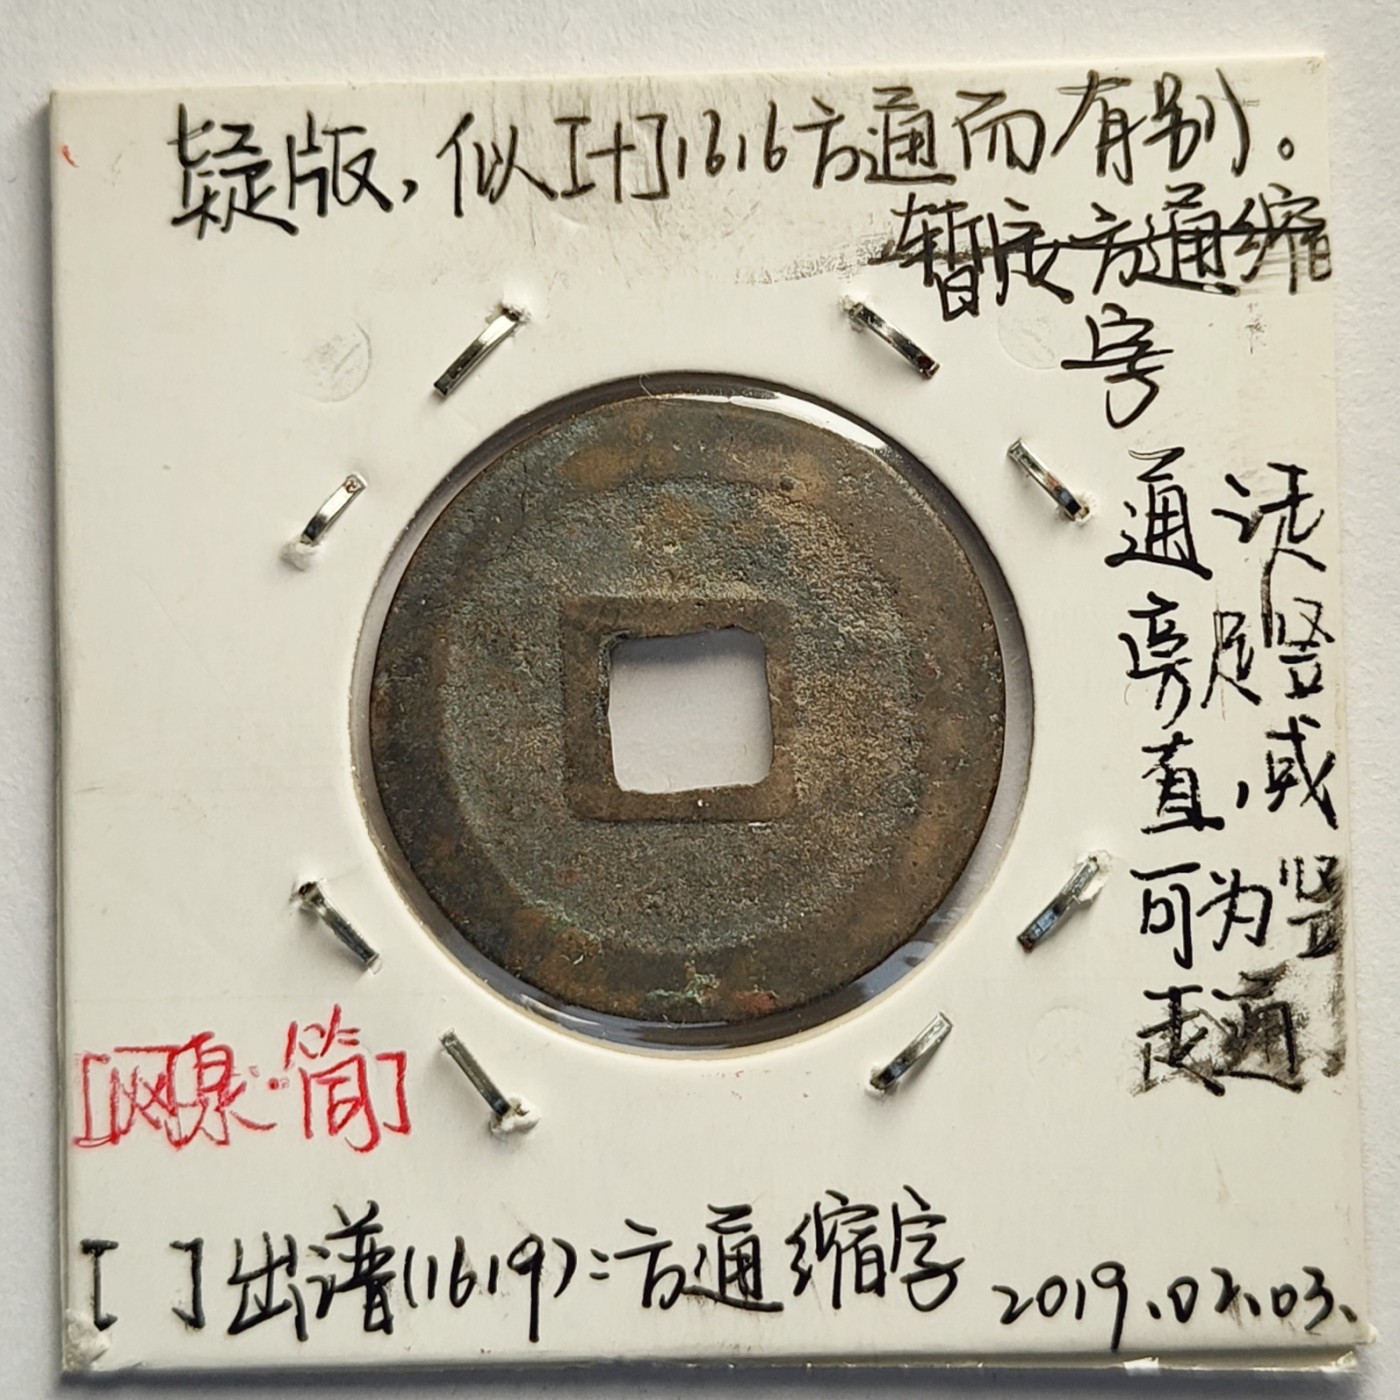 疑版，似[卄]1616方通而有别。
暂按方通缩
字
通
旁
直，或
可为竖
走通
[网泉·简]
[ ]出谱(1619):方通缩字
2019.02.03.